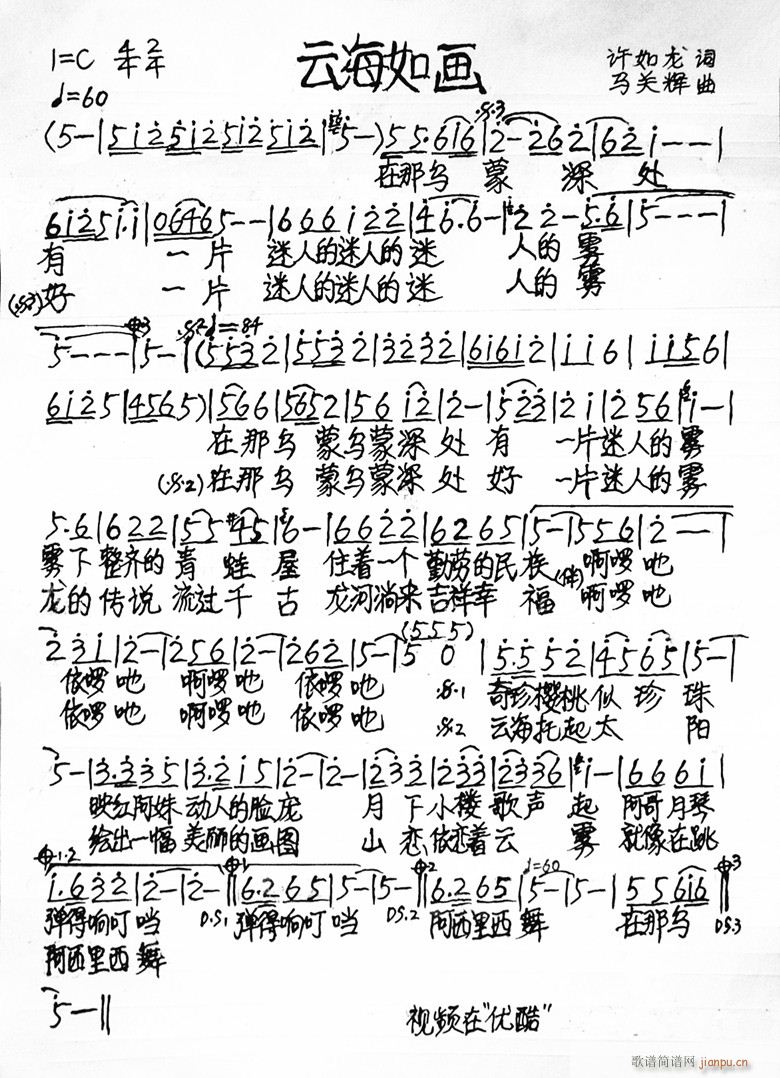 1=C 4/4 2/4
云海如画
许如龙 词
马关辉 曲
♩=60
(5-|5i25i25i25i2|5-)55.6i6|2-262|62i---|
在那乌 蒙 深 处
6i25i.i|06465--|666i22|46.6-|22-5.6|5---|
有 一 片 迷人的迷人的迷 人的 雾
好 一 片 迷人的迷人的迷 人的 雾
♩=84
5---|5-|(5532|5532|3232|6i6i2|ii6|ii56|
6i25|4565)|566|5652|56i2|2-|523|2i|256|i-|
在那乌 蒙乌蒙深 处 有 一片迷人的 雾
在那乌 蒙乌蒙深 处 好 一片迷人的 雾
5.6|622|55#45|6-|6622|6265|5-|556|2--|
雾下 整齐的 青 蛙 屋 住着一个 勤劳的民 族 啊啰吔
龙的 传说 流过 千 古 龙河淌来 吉祥幸 福 (伴) 啊啰吔
(555)
23i|2-|256|2-|262|5-|50|5.552|4565|5-|
依啰吔 啊啰吔 依啰吔 奇珍樱桃 似 珍 珠
依啰吔 啊啰吔 依啰吔 云海托起 太 阳
5-|3.335|3.2i5|2-|2-|233|233|2336|i-|666i|
映红阿妹 动人的脸庞 月 下 小楼 歌声 起 阿哥月琴
绘出一幅 美丽的画图 山 恋 依恋着 云 雾 就像在跳
♩=60
i.632|2-|2-‖6.265|5-|5-‖6.265|5-|5-|556i6‖
弹得响叮当 D.S.1 弹得响叮当 D.S.2 阿西里西舞 在那乌 D.S.3
阿西里西 舞
5-‖
视频在"优酷"
歌谱简谱网 jianpu.cn